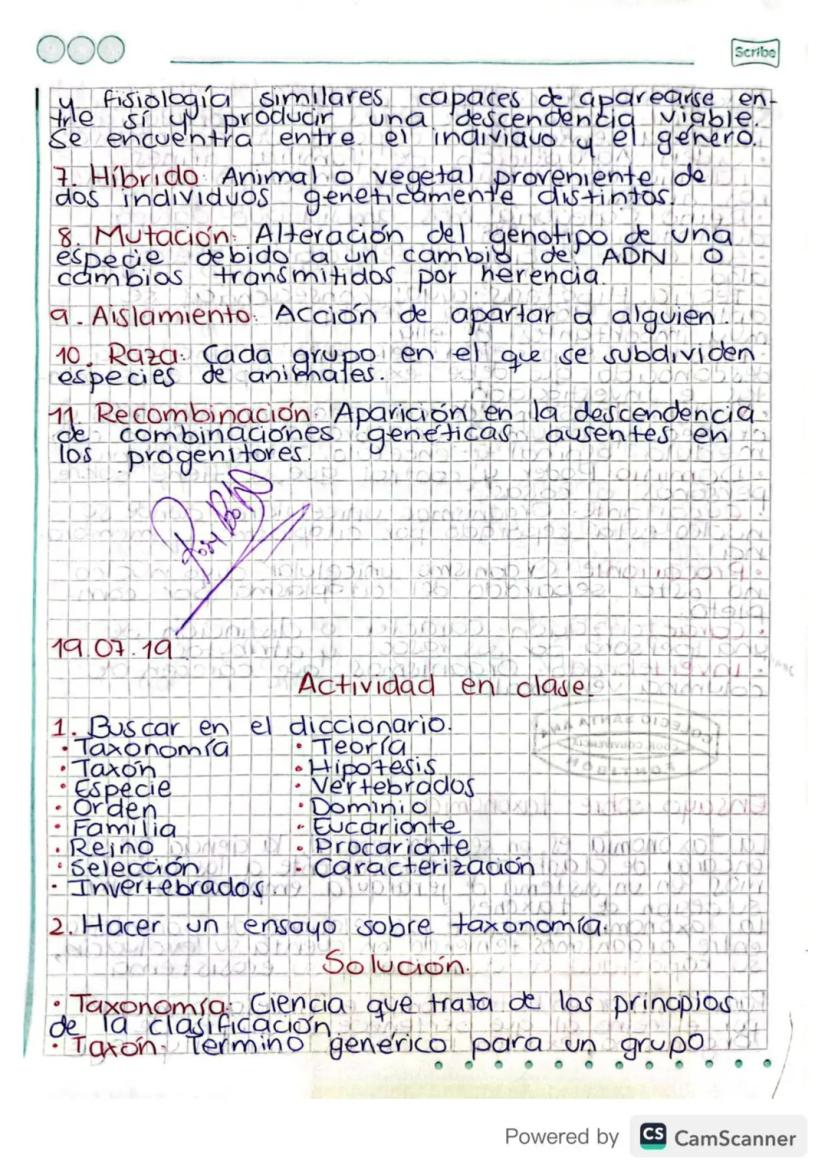 Scribe
y fisiología similares capaces de aparearse en-
tre sí y producir una descendencia viable.
Se encuentra entre el individuo y el género.
7. Híbrido: Animal o vegetal proveniente de
dos individuos geneticamente distintos.
8. Mutación: Alteración del genotipo de una
especie debido a un cambio de ADN o
cambios transmitidos por herencia.
9. Aislamiento: Acción de apartar a alguien.
10. Raza: Cada grupo en el que se subdividen
especies de animales.
11. Recombinación: Aparición en la descendencia
de combinaciones genéticas ausentes en
los progenitores.
19.07.19
Actividad en clase.
1. Buscar en el diccionario.
• Taxonomía • Teoría
• Taxón • Hipotesis
• Especie • Vertebrados
• Orden • Dominio
• Familia • Eucarionte
• Reino • Procarionte
• Selección • Caracterización
• Invertebrados
2. Hacer un ensayo sobre taxonomía.
Solución.
• Taxonomía: Ciencia que trata de los principios
de la clasificación.
• Taxón: Termino generico para un grupo
Powered by CS CamScanner